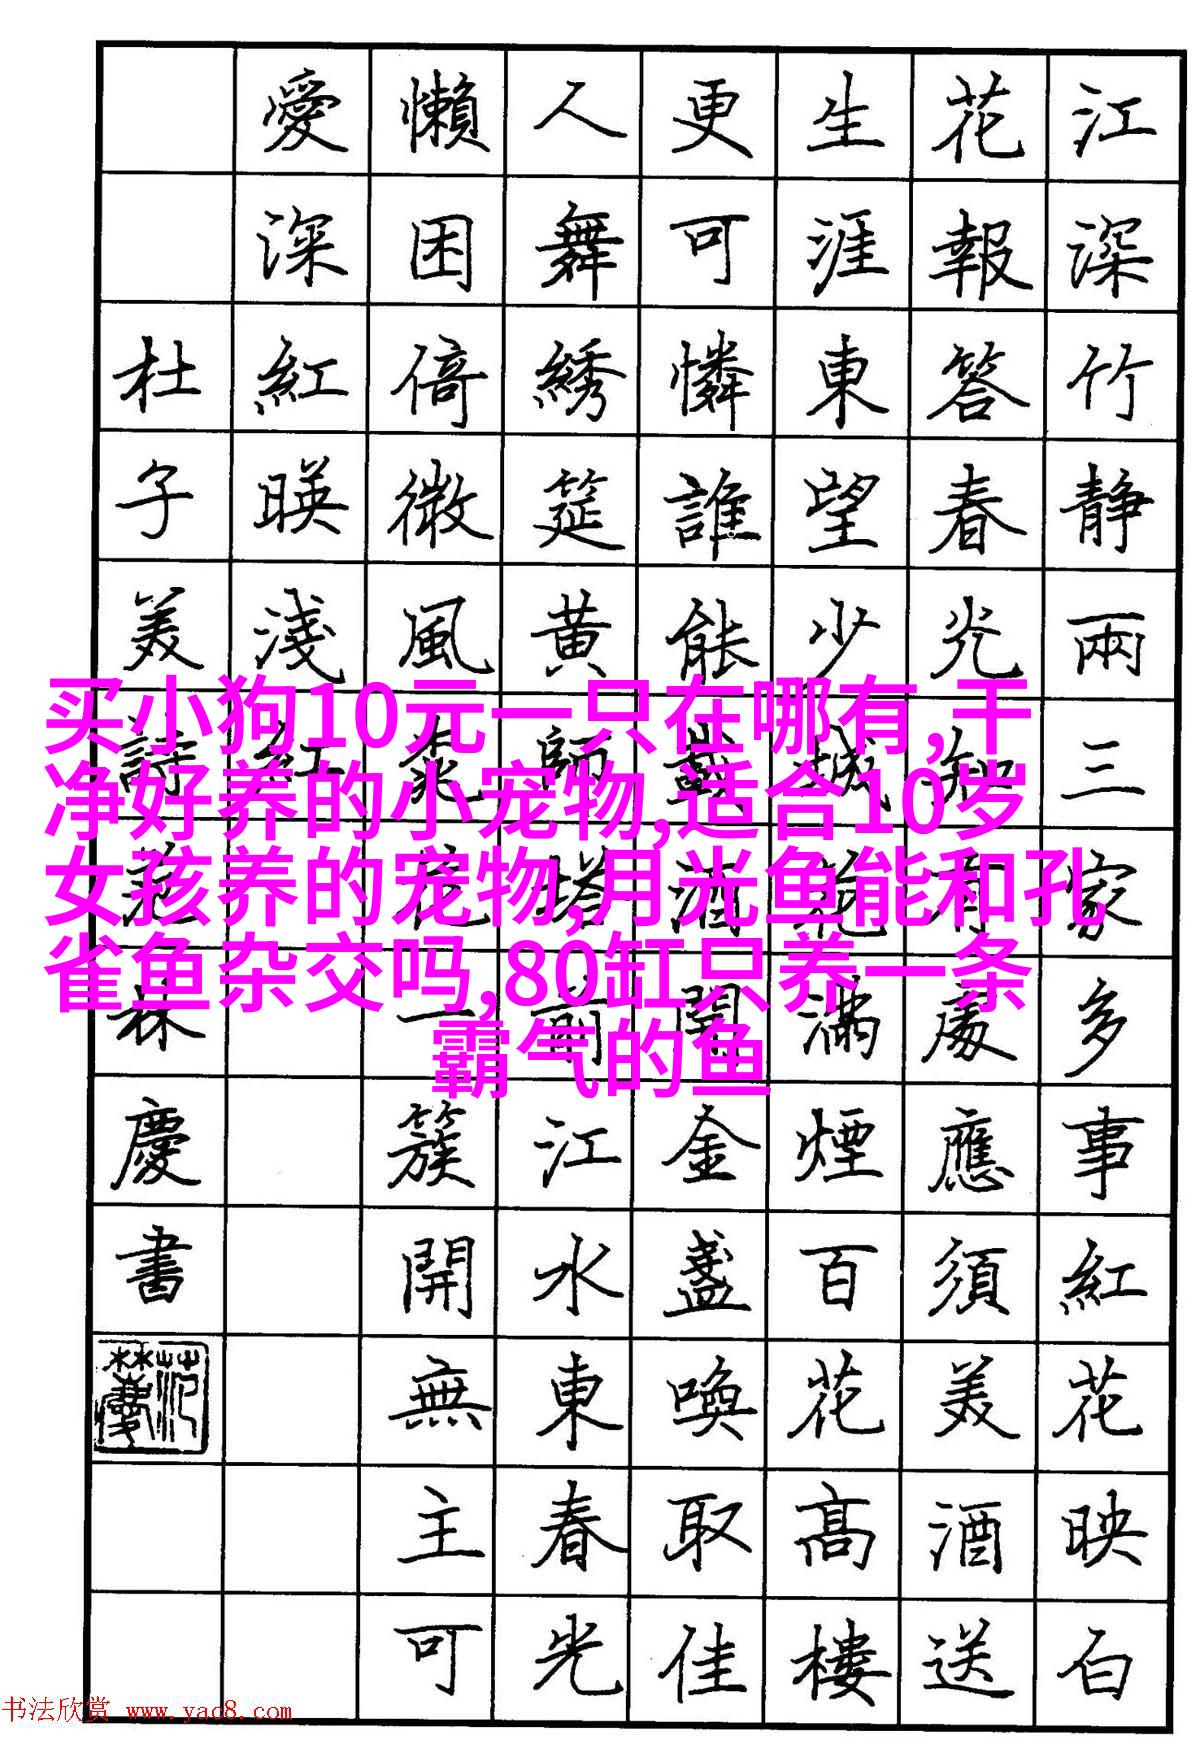 江深竹静兩三家多事紅花映白
花報答春光知有處應須美酒送
生涯東望少城滿煙百花高樓
更可憐誰能載酒開金盞喚取佳
人舞綉筵黄師塔前江水東春光
懶困倚微風桃花一簇開無主可
愛深紅暎淺紅
杜子美詩范林慶書
范林慶
买小狗10元一只在哪有,干
净好养的小宠物,适合10岁
女孩养的宠物,月光鱼能和孔
雀鱼杂交吗,80缸只养一条
霸气的鱼
书法欣赏 www.yac8.com